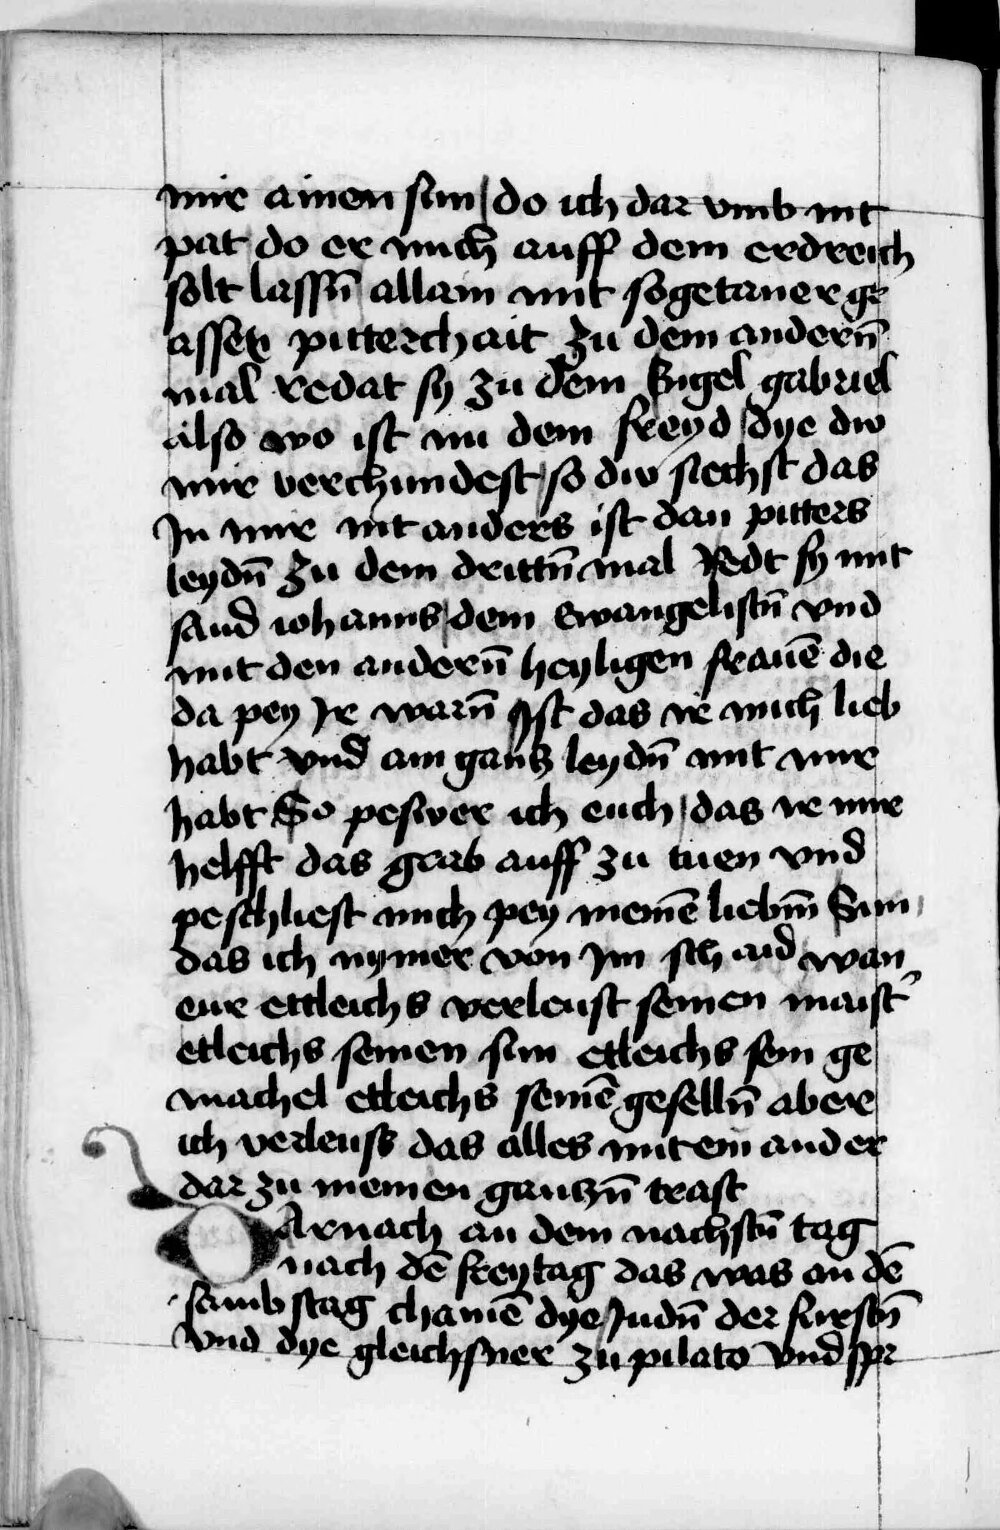 mir ainen sun do ich dar vmb nit
pat do er mich auff dem erdreich
solt lassn̄ allain mit sogetaner ge
pitterchait zu dem andern̄
mal redat sy zu dem Engel gabriel
also wo ist nu dein freyd dye dw
mir verchundest so dw siechst das
Jn mir nit anders ist dan pitters
leydn̄ zu dem drittn̄ mal Redt sy mit
sand iohanns dem Ewangelistn̄ vnd
mit den andern̄ heyligen frauē die
da pey Jr warn̄ Jst das ir mich lieb
habt vnd ain gantz leydn̄ mit mir
habt So peswer ich euch das ir mir
helfft das grab auff zu tuen vnd
peschliest mich pey meinē liebm̄ Sun
das ich nymer von Jm schaid wan
eur ettleichs verleust seinen maist'
etleichs seinen sun etleichs sein ge
machel etleichs seinē geselln̄ aber
ich verleus das alles mit ein ander
dar zu meinen gantzn̄ trast
DArnach an dem nachstn̄ tag
nach dē freytag das was an dē
sambstag chamē dye Judn̄ der furstn̄
vnd dye gleichsner zu pilato vnd spr